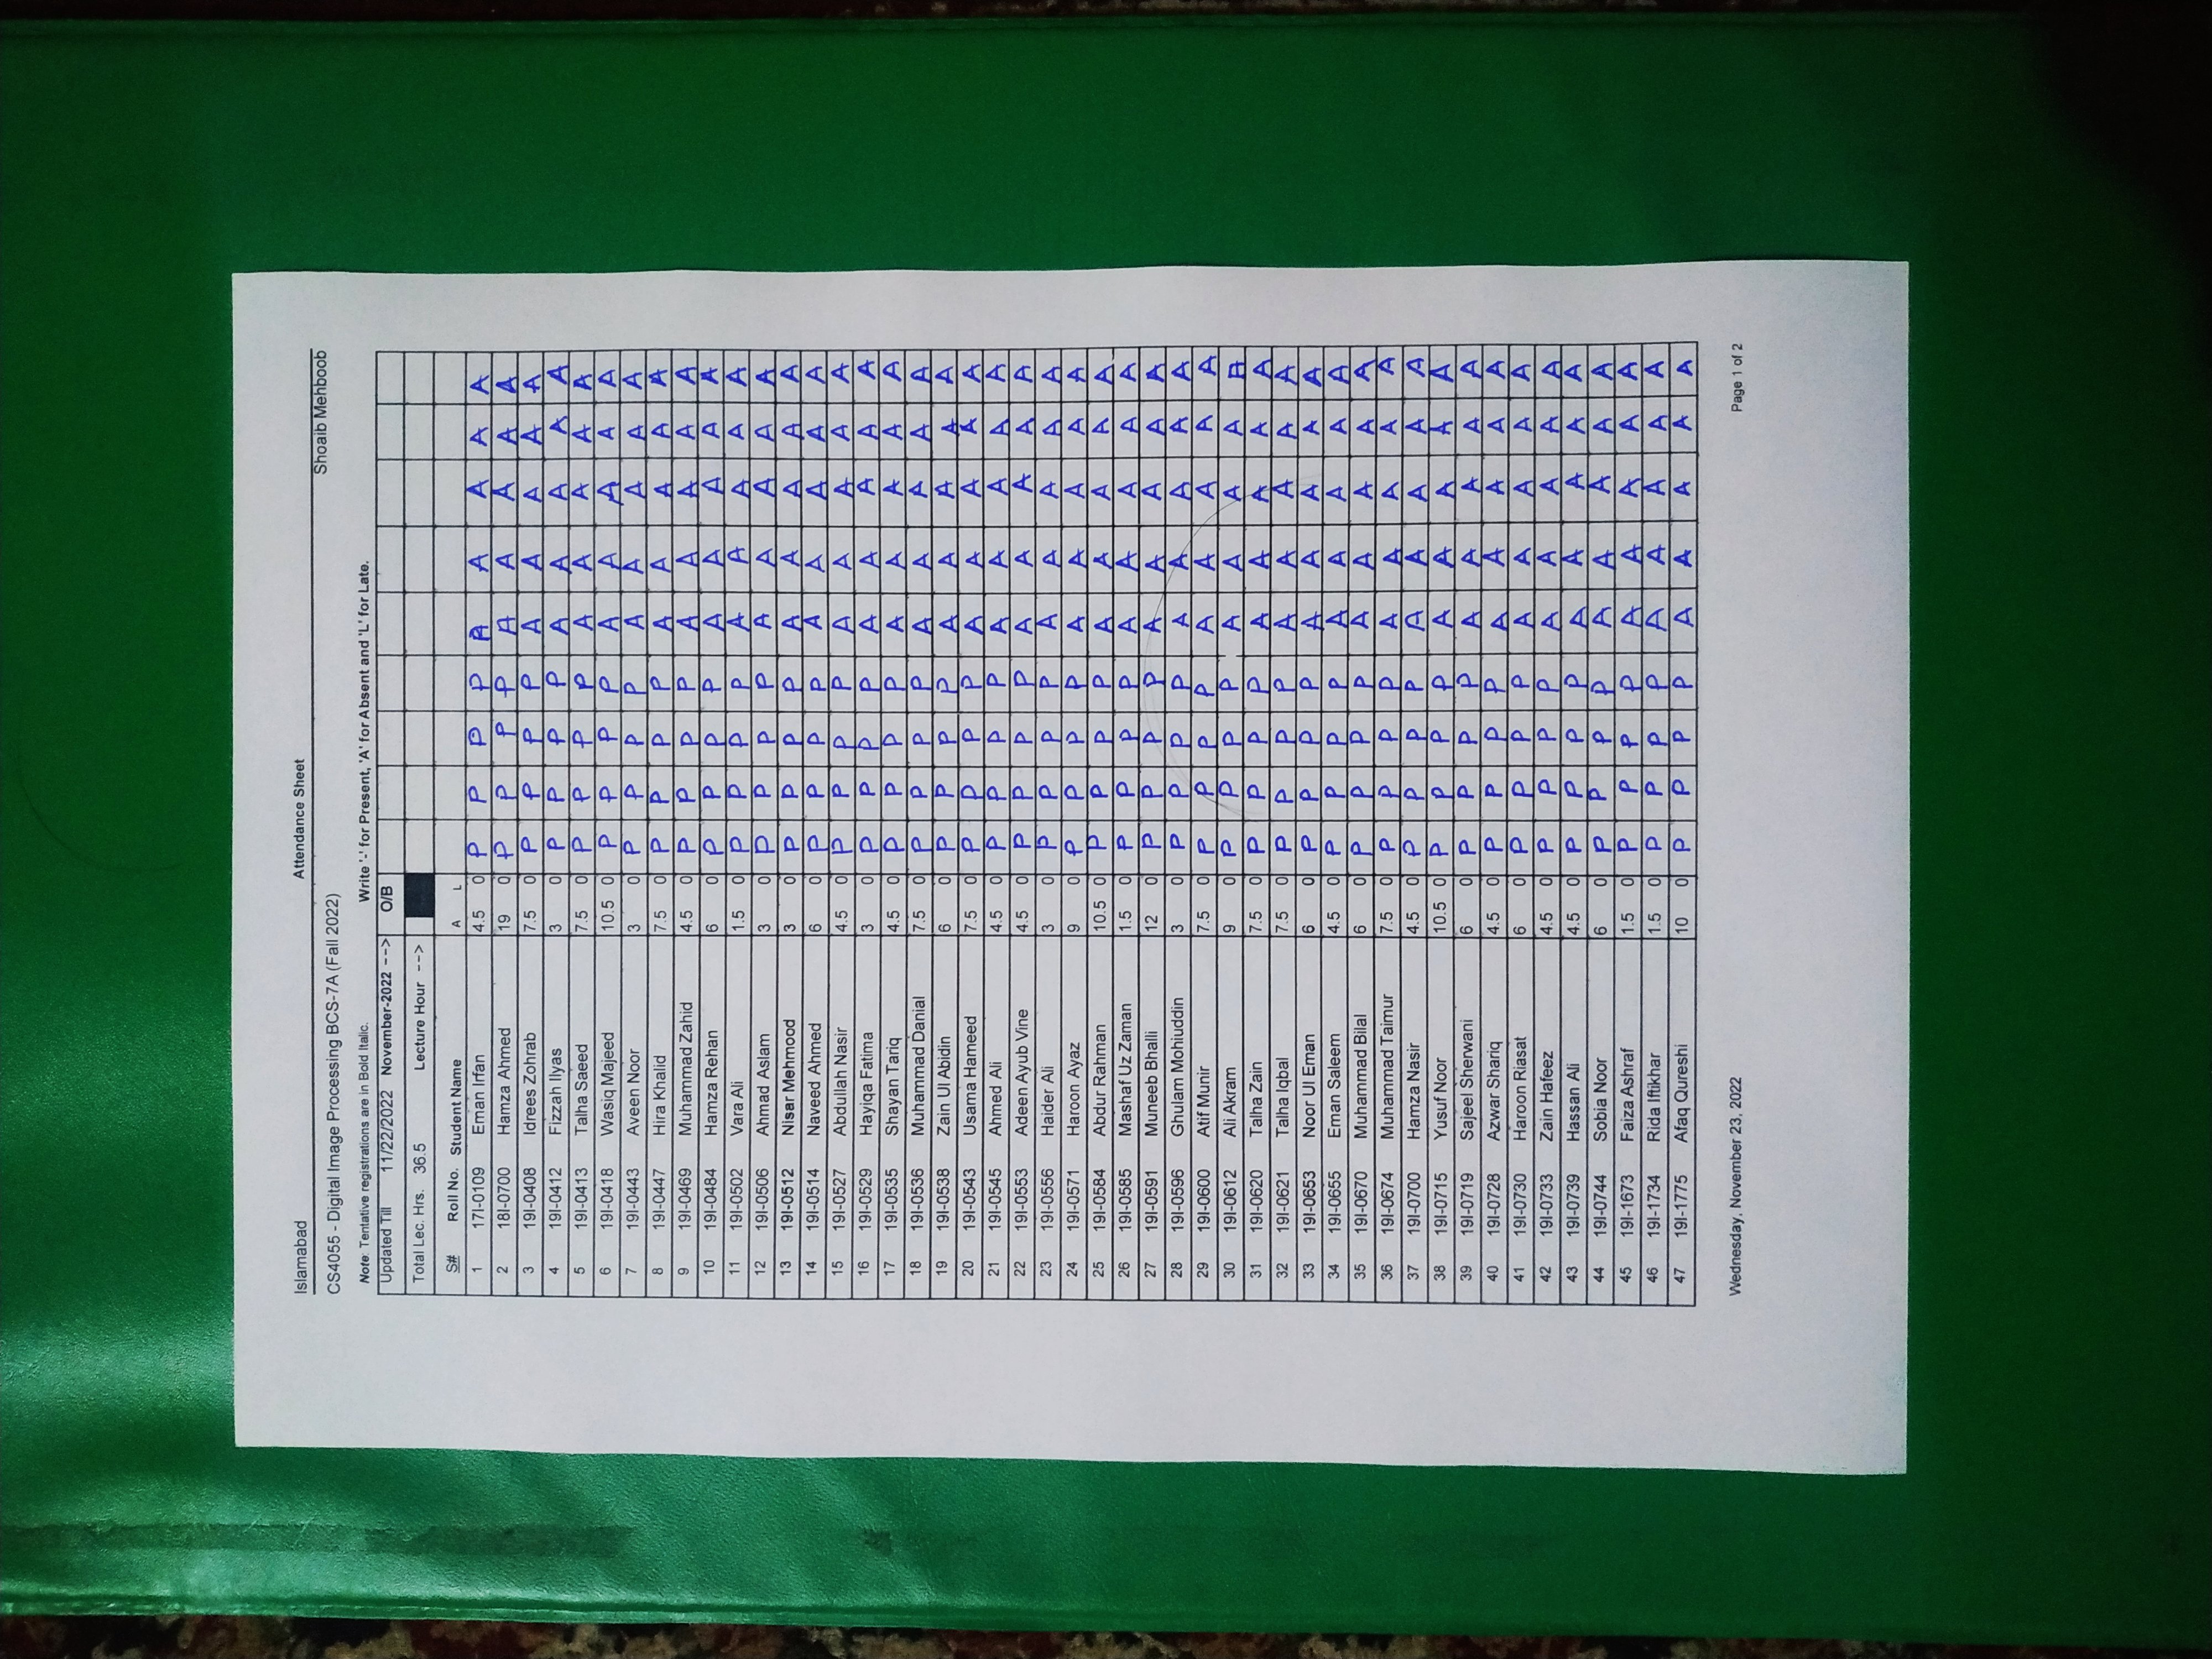 Islamabad Attendance Sheet
Shoaib Mehboob
CS4055 - Digital Image Processing BCS-7A (Fall 2022)
Note: Tentative registrations are in Bold Italic. Write '-' for Present, 'A' for Absent and 'L' for Late.
Updated Till 11/22/2022 November-2022 --> O/B
Total Lec. Hrs. 36.5 Lecture Hour -->
S# Roll No. Student Name A L
1 17I-0109 Eman Irfan 4.5 0 P P P P A A A A A
2 18I-0700 Hamza Ahmed 19 0 P P P P A A A A A
3 19I-0408 Idrees Zohrab 7.5 0 P P P P A A A A A
4 19I-0412 Fizzah Ilyas 3 0 P P P P A A A A A
5 19I-0413 Talha Saeed 7.5 0 P P P P A A A A A
6 19I-0418 Wasiq Majeed 10.5 0 P P P P A A A A A
7 19I-0443 Aveen Noor 3 0 P P P P A A A A A
8 19I-0447 Hira Khalid 7.5 0 P P P P A A A A A
9 19I-0469 Muhammad Zahid 4.5 0 P P P P A A A A A
10 19I-0484 Hamza Rehan 6 0 P P P P A A A A A
11 19I-0502 Vara Ali 1.5 0 P P P P A A A A A
12 19I-0506 Ahmad Aslam 3 0 P P P P A A A A A
13 19I-0512 Nisar Mehmood 3 0 P P P P A A A A A
14 19I-0514 Naveed Ahmed 6 0 P P P P A A A A A
15 19I-0527 Abdullah Nasir 4.5 0 P P P P A A A A A
16 19I-0529 Hayiqa Fatima 3 0 P P P P A A A A A
17 19I-0535 Shayan Tariq 4.5 0 P P P P A A A A A
18 19I-0536 Muhammad Danial 7.5 0 P P P P A A A A A
19 19I-0538 Zain Ul Abidin 6 0 P P P P A A A A A
20 19I-0543 Usama Hameed 7.5 0 P P P P A A A A A
21 19I-0545 Ahmed Ali 4.5 0 P P P P A A A A A
22 19I-0553 Adeen Ayub Vine 4.5 0 P P P P A A A A A
23 19I-0556 Haider Ali 3 0 P P P P A A A A A
24 19I-0571 Haroon Ayaz 9 0 P P P P A A A A A
25 19I-0584 Abdur Rahman 10.5 0 P P P P A A A A A
26 19I-0585 Mashaf Uz Zaman 1.5 0 P P P P A A A A A
27 19I-0591 Muneeb Bhalli 12 0 P P P P A A A A A
28 19I-0596 Ghulam Mohiuddin 3 0 P P P P A A A A A
29 19I-0600 Atif Munir 7.5 0 P P P P A A A A A
30 19I-0612 Ali Akram 9 0 P P P P A A A A A
31 19I-0620 Talha Zain 7.5 0 P P P P A A A A A
32 19I-0621 Talha Iqbal 7.5 0 P P P P A A A A A
33 19I-0653 Noor Ul Eman 6 0 P P P P A A A A A
34 19I-0655 Eman Saleem 4.5 0 P P P P A A A A A
35 19I-0670 Muhammad Bilal 6 0 P P P P A A A A A
36 19I-0674 Muhammad Taimur 7.5 0 P P P P A A A A A
37 19I-0700 Hamza Nasir 4.5 0 P P P P A A A A A
38 19I-0715 Yusuf Noor 10.5 0 P P P P A A A A A
39 19I-0719 Sajeel Sherwani 6 0 P P P P A A A A A
40 19I-0728 Azwar Shariq 4.5 0 P P P P A A A A A
41 19I-0730 Haroon Riasat 6 0 P P P P A A A A A
42 19I-0733 Zain Hafeez 4.5 0 P P P P A A A A A
43 19I-0739 Hassan Ali 4.5 0 P P P P A A A A A
44 19I-0744 Sobia Noor 6 0 P P P P A A A A A
45 19I-1673 Faiza Ashraf 1.5 0 P P P P A A A A A
46 19I-1734 Rida Iftikhar 1.5 0 P P P P A A A A A
47 19I-1775 Afaq Qureshi 10 0 P P P P A A A A A
Wednesday, November 23, 2022 Page 1 of 2